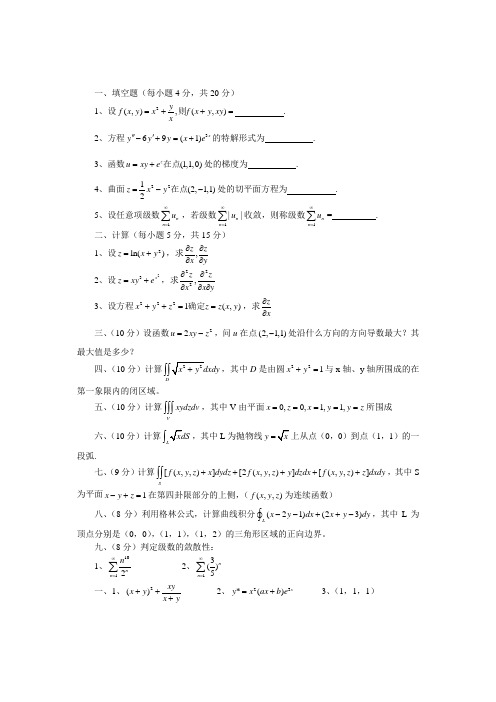 一、填空题（每小题4分，共20分）
1、设 f(x, y) = x² + y/x, 则f(x + y, xy) = ______ .
2、方程 y″ − 6y′ + 9y = (x + 1)e³ˣ 的特解形式为 ______ .
3、函数 u = xy + eᶻ 在点(1,1,0) 处的梯度为 ______ .
4、曲面 z = 1/2 x² − y² 在点(2, −1,1) 处的切平面方程为 ______ .
5、设任意项级数 ∑_{n=1}^{∞} uₙ ，若级数 ∑_{n=1}^{∞} | uₙ | 收敛，则称级数 ∑_{n=1}^{∞} uₙ = ______ .
二、计算（每小题5分，共15分）
1、设 z = ln(x + y²) ，求 ∂z/∂x , ∂z/∂y
2、设 ，求 ∂²z/∂x² , ∂²z/∂x∂y
3、设方程 x² + y² + z² = 1确定z = z(x, y) ，求 ∂z/∂x
三、（10分）设函数 u = 2xy − z² ，问 u 在点 (2, −1,1) 处沿什么方向的方向导数最大？其
最大值是多少？
四、（10分）计算 ∬_D √(x² + y²) dxdy ，其中 D 是由圆 x² + y² = 1 与 x 轴、y 轴所围成的在
第一象限内的闭区域。
五、（10分）计算 ∭_V xydzdv ，其中 V 由平面 x = 0, z = 0, x = 1, y = 1, y = z 所围成
六、（10分）计算 ∫_L √x dS ，其中 L 为抛物线 y = √x 上从点（0，0）到点（1，1）的一
段弧.
七、（9分）计算 ∬_S [f(x, y, z) + x]dydz + [2f(x, y, z) + y]dzdx + [f(x, y, z) + z]dxdy ，其中 S
为平面 x − y + z = 1 在第四卦限部分的上侧，（ f(x, y, z) 为连续函数）
八、（8分）利用格林公式，计算曲线积分 ∮_L (x − 2y − 1)dx + (2x + y − 3)dy ，其中 L 为
顶点分别是（0，0），（1，1），（1，2）的三角形区域的正向边界。
九、（8分）判定级数的敛散性：
1、 ∑_{n=1}^{∞} n¹⁰/2ⁿ 2、 ∑_{n=1}^{∞} (3/5)ⁿ
一、1、 (x + y)² + xy/(x + y) 2、 y* = x²(ax + b)e³ˣ 3、（1，1，1）